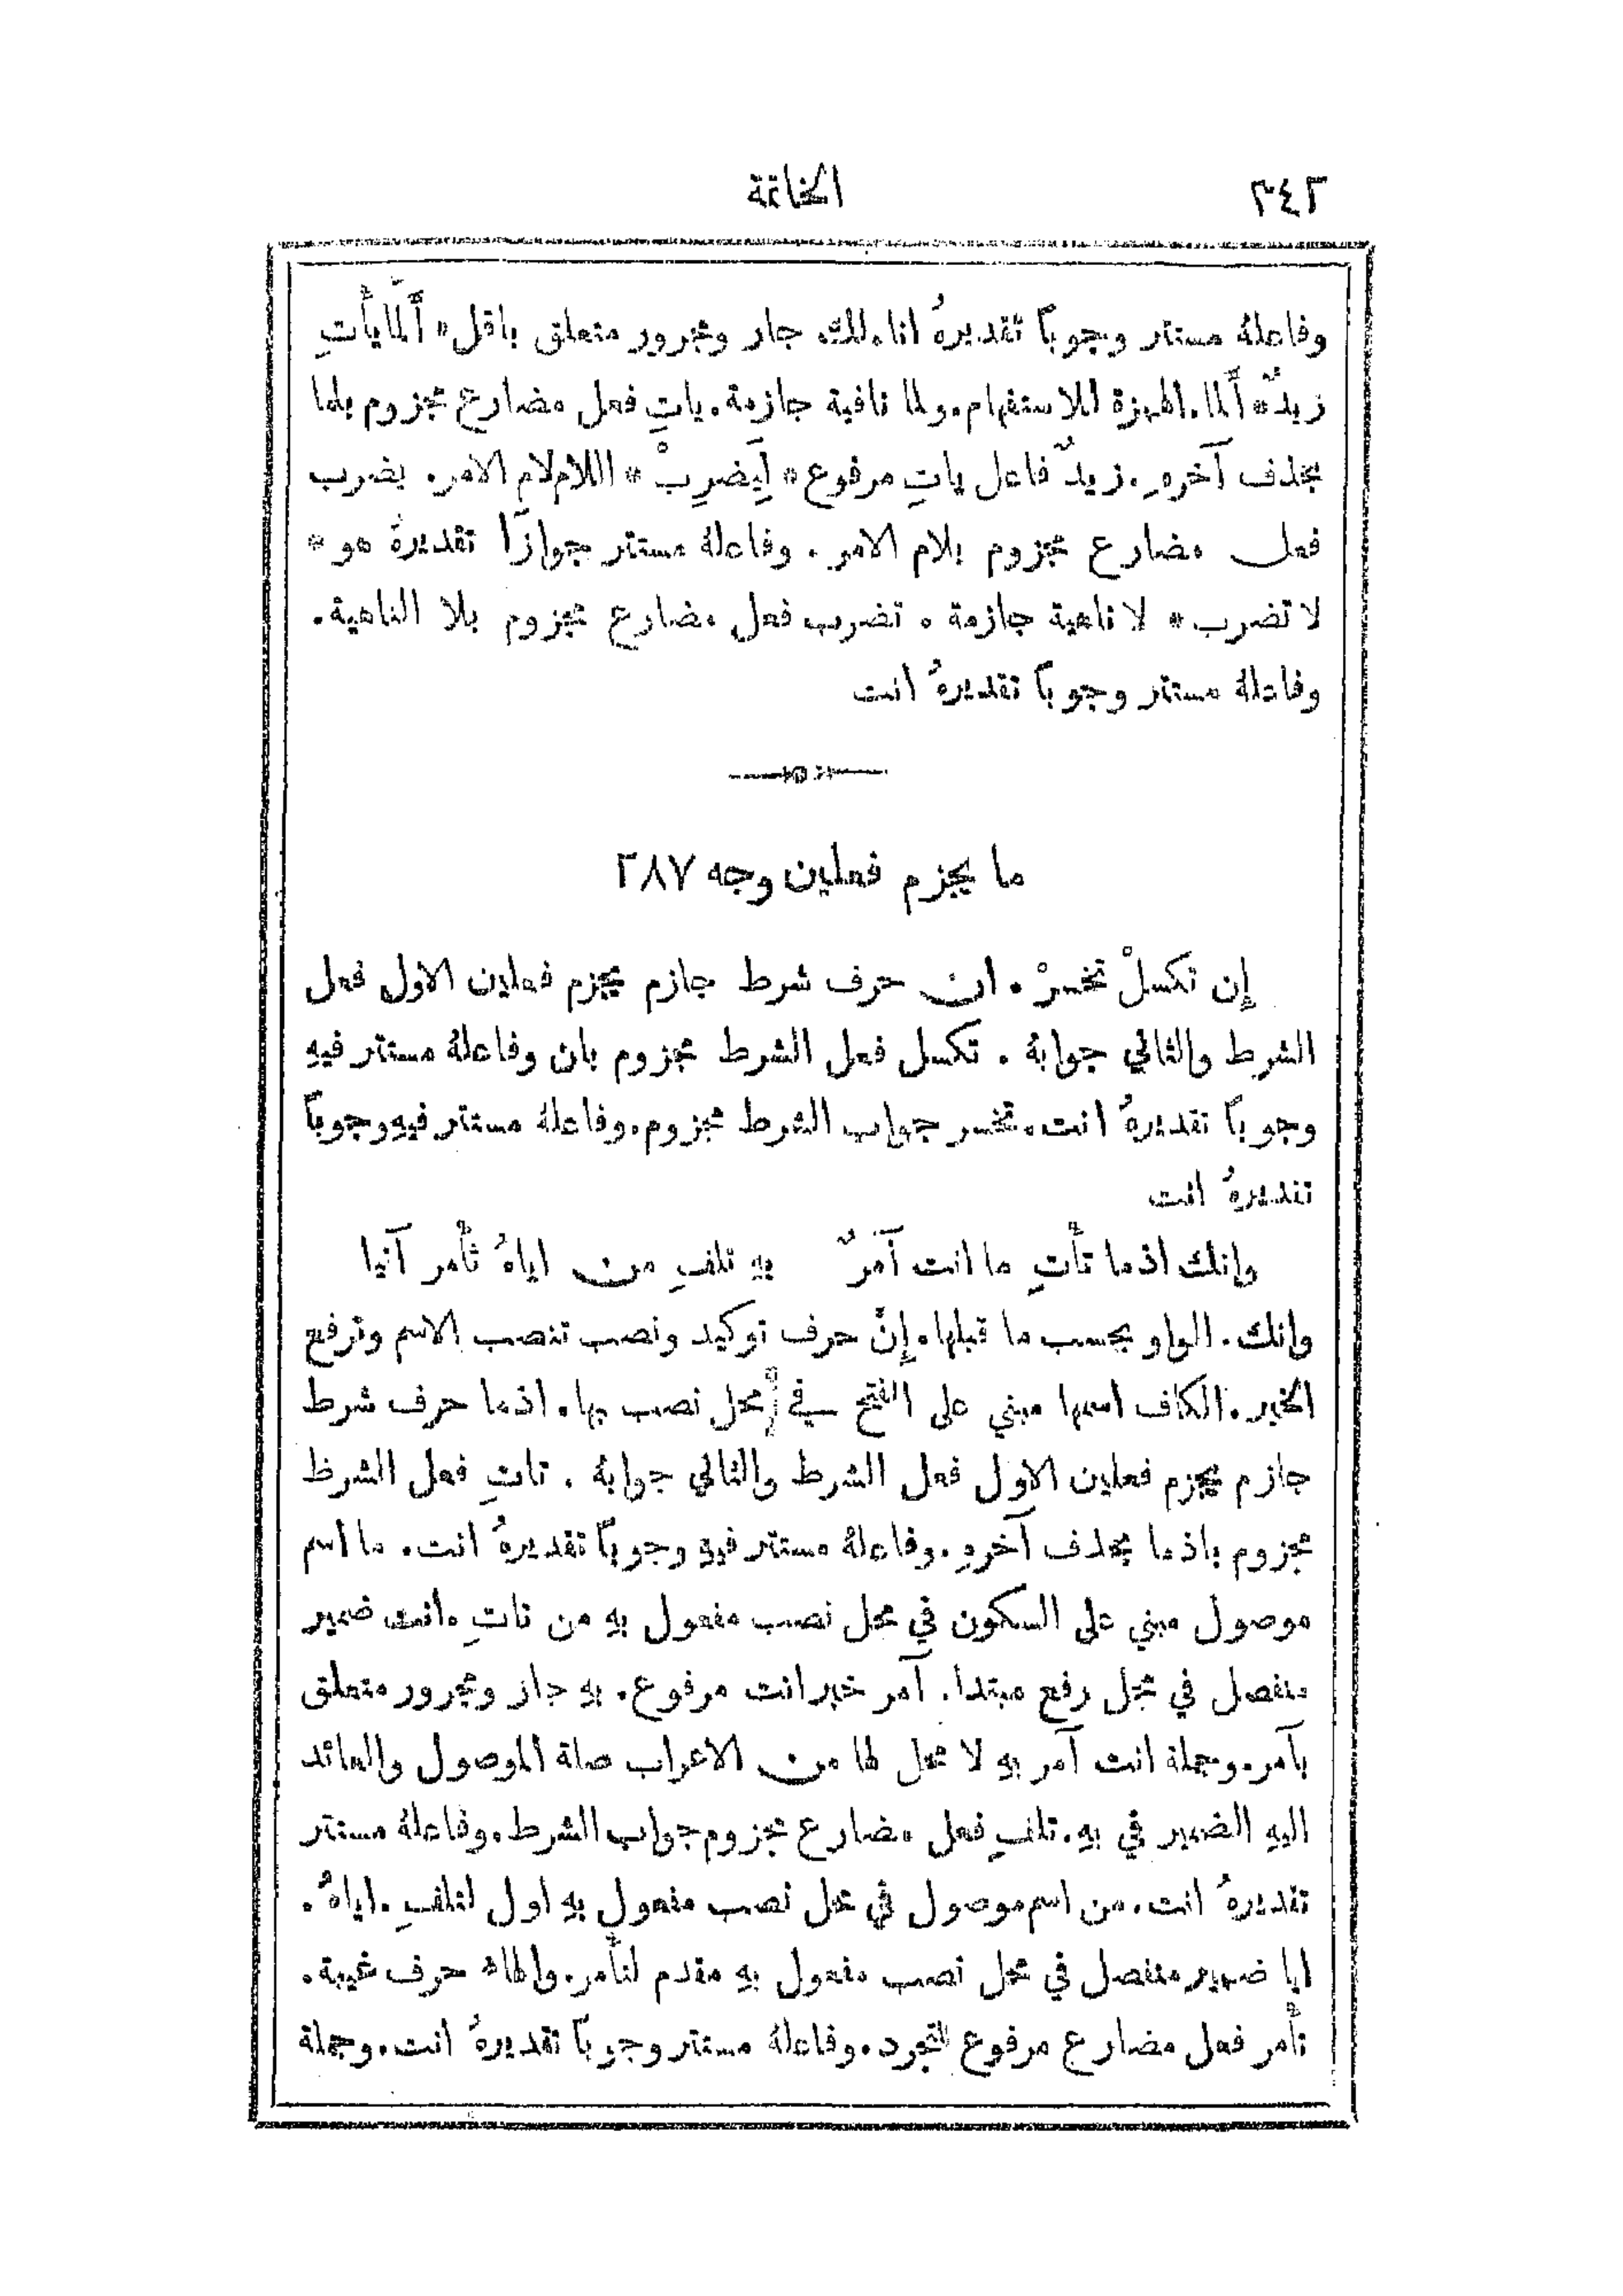 ٣٤٢
الخاتمة
وفاعلهُ مستتر وجوباً تقديرهُ انا.لك جار ومجرور متعلق باقل * أَلَّما يأْتِ
زيدٌ * أَلَّما.الهمزة للاستفهام.ولما نافية جازمة.ياتِ فعل مضارع مجزوم بلما
بحذف آخرهِ.زيدٌ فاعل ياتِ مرفوع * لِيَضرِبْ * اللام لام الامر. يضرب
فعل مضارع مجزوم بلام الامر. وفاعلهُ مستتر جوازًا تقديرهُ هو *
لا تضرب * لا ناهية جازمة . تضرب فعل مضارع مجزوم بلا الناهية.
وفاعلهُ مستتر وجوباً تقديرهُ انت
ما يجزم فعلين وجه ٢٨٧
إِن تكسلْ تخسرْ . ان حرف شرط جازم يجزم فعلين الاول فعل
الشرط والثاني جوابهُ . تكسل فعل الشرط مجزوم بان وفاعلهُ مستتر فيهِ
وجوباً تقديرهُ انت.تخسر جواب الشرط مجزوم.وفاعلهُ مستتر فيهِ وجوباً
تقديرهُ انت
وإنك اذ ما تأْتِ ما انت آمرٌ بهِ تلفِ من اياهُ تأْمر آتيا
وانك. الواو بحسب ما قبلها.إِنَّ حرف توكيد ونصب تنصب الاسم وترفع
الخبر.الكاف اسمها مبني على الفتح في محل نصب بها. اذ ما حرف شرط
جازم يجزم فعلين الاول فعل الشرط والثاني جوابهُ . تاتِ فعل الشرط
مجزوم باذ ما بحذف آخرهِ.وفاعلهُ مستتر فيهِ وجوباً تقديرهُ انت. ما اسم
موصول مبني على السكون في محل نصب مفعول بهِ من تاتِ.انت ضمير
منفصل في محل رفع مبتدا. آمر خبر انت مرفوع. بهِ جار ومجرور متعلق
بآمر.وجملة انت آمر بهِ لا محل لها من الاعراب صلة الموصول والعائد
اليهِ الضمير في بهِ.تلفِ فعل مضارع مجزوم جواب الشرط.وفاعلهُ مستتر
تقديرهُ انت. من اسم موصول في محل نصب مفعول بهِ اول لتلفِ.اياهُ.
ايا ضمير منفصل في محل نصب مفعول بهِ مقدم لتأْمر.والهاء حرف غيبة.
تأْمر فعل مضارع مرفوع للتجرد.وفاعلهُ مستتر وجوباً تقديرهُ انت.وجملة